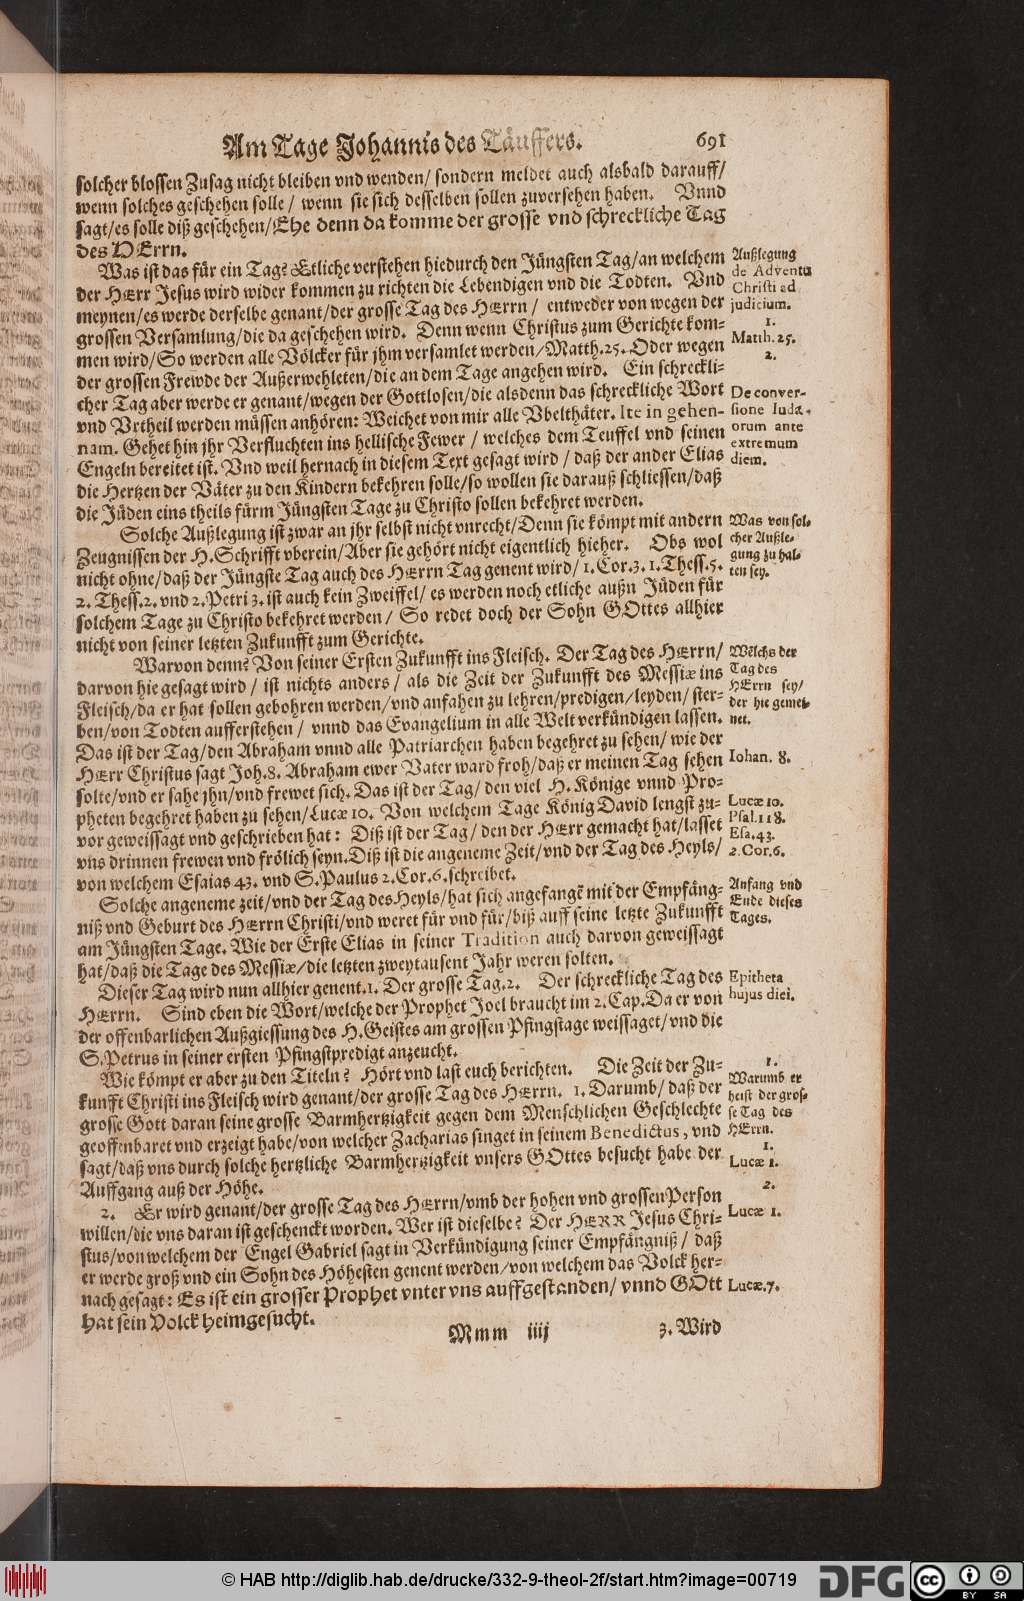 Am Tage Johannis des Täuffers. 691
solcher blossen Zusag nicht bleiben vnd wenden/ sondern meldet auch alsbald darauff/
wenn solches geschehen solle/ wenn sie sich desselben sollen zuversehen haben. Vnnd
sagt/es solle diß geschehen/Ehe denn da komme der grosse vnd schreckliche Tag
des HErrn.
Was ist das für ein Tag? Etliche verstehen hiedurch den Jüngsten Tag/an welchem
der HErr Jesus wird wider kommen zu richten die Lebendigen vnd die Todten. Vnd
meynen/es werde derselbe genant/der grosse Tag des HErrn/ entweder von wegen der
grossen Versamlung/die da geschehen wird. Denn wenn Christus zum Gerichte kom-
men wird/So werden alle Völcker für jhm versamlet werden/Matth.25. Oder wegen
der grossen Frewde der Außerwehleten/die an dem Tage angehen wird. Ein schreckli-
cher Tag aber werde er genant/wegen der Gottlosen/die alsdenn das schreckliche Wort
vnd Vrtheil werden müssen anhören: Weichet von mir alle Vbelthäter. Ite in gehen-
nam. Gehet hin jhr Verfluchten ins hellische Fewer/ welches dem Teuffel vnd seinen
Engeln bereitet ist. Vnd weil hernach in diesem Text gesagt wird/ daß der ander Elias
die Hertzen der Väter zu den Kindern bekehren solle/so wollen sie darauß schliessen/daß
die Jüden eins theils fürm Jüngsten Tage zu Christo sollen bekehret werden.
Außlegung
de Adventu
Christi ad
judicium.
1.
Matth. 25.
2.
De conver-
sione Iudæ-
orum ante
extremum
diem.
Solche Außlegung ist zwar an jhr selbst nicht vnrecht/Denn sie kömpt mit andern
Zeugnissen der H.Schrifft vberein/Aber sie gehört nicht eigentlich hieher. Obs wol
nicht ohne/daß der Jüngste Tag auch des HErrn Tag genent wird/ 1.Cor.3. 1.Thess.5.
2. Thess.2. vnd 2.Petri 3. ist auch kein Zweiffel/ es werden noch etliche außn Jüden für
solchem Tage zu Christo bekehret werden/ So redet doch der Sohn GOttes allhier
nicht von seiner letzten Zukunfft zum Gerichte.
Was von sol-
cher Außle-
gung zu hal-
ten sey.
Warvon denn? Von seiner Ersten Zukunfft ins Fleisch. Der Tag des HErrn/
darvon hie gesagt wird/ ist nichts anders/ als die Zeit der Zukunfft des Messiæ ins
Fleisch/da er hat sollen gebohren werden/vnd anfahen zu lehren/predigen/leyden/ ster-
ben/von Todten aufferstehen/ vnnd das Evangelium in alle Welt verkündigen lassen.
Das ist der Tag/den Abraham vnnd alle Patriarchen haben begehret zu sehen/ wie der
HErr Christus sagt Joh.8. Abraham ewer Vater ward froh/daß er meinen Tag sehen
solte/vnd er sahe jhn/vnd frewet sich. Das ist der Tag/ den viel H. Könige vnnd Pro-
pheten begehret haben zu sehen/Lucæ 10. Von welchem Tage König David lengst zu-
vor geweissagt vnd geschrieben hat: Diß ist der Tag/ den der HErr gemacht hat/lasset
vns drinnen frewen vnd frölich seyn. Diß ist die angeneme Zeit/vnd der Tag des Heyls/
von welchem Esaias 43. vnd S.Paulus 2.Cor.6.schreibet.
Welchs der
Tag des
HErrn sey/
der hie gemei-
net.
Iohan. 8.
Lucæ 10.
Psal.118.
Esa.43.
2.Cor.6.
Solche angeneme zeit/vnd der Tag des Heyls/hat sich angefangẽ mit der Empfäng-
niß vnd Geburt des HErrn Christi/vnd weret für vnd für/biß auff seine letzte Zukunfft
am Jüngsten Tage. Wie der Erste Elias in seiner Tradition auch darvon geweissagt
hat/daß die Tage des Messiæ/die letzten zweytausent Jahr weren solten.
Anfang vnd
Ende dieses
Tages.
Dieser Tag wird nun allhier genent.1. Der grosse Tag.2. Der schreckliche Tag des
HErrn. Sind eben die Wort/welche der Prophet Joel braucht im 2.Cap.Da er von
der offenbarlichen Außgiessung des H.Geistes am grossen Pfingstage weissaget/vnd die
S.Petrus in seiner ersten Pfingstpredigt anzeucht.
Epitheta
hujus diei.
Wie kömpt er aber zu den Titeln? Hört vnd last euch berichten. Die Zeit der Zu-
kunfft Christi ins Fleisch wird genant/der grosse Tag des HErrn. 1. Darumb/ daß der
grosse Gott daran seine grosse Barmhertzigkeit gegen dem Menschlichen Geschlechte
geoffenbaret vnd erzeigt habe/von welcher Zacharias singet in seinem Benedictus, vnd
sagt/daß vns durch solche hertzliche Barmhertzigkeit vnsers GOttes besucht habe der
Auffgang auß der Höhe.
1.
Warumb er
heist der gros-
se Tag des
HErrn.
1.
Lucæ 1.
2. Er wird genant/der grosse Tag des HErrn/vmb der hohen vnd grossen Person
willen/die vns daran ist geschenckt worden. Wer ist dieselbe? Der HERR Jesus Chri-
stus/von welchem der Engel Gabriel sagt in Verkündigung seiner Empfängniß/ daß
er werde groß vnd ein Sohn des Höhesten genent werden/von welchem das Volck her-
nach gesagt: Es ist ein grosser Prophet vnter vns auffgestanden/ vnnd GOtt
hat sein Volck heimgesucht.
2.
Lucæ 1.
Lucæ.7.
Mmm iiij 3. Wird
© HAB http://diglib.hab.de/drucke/332-9-theol-2f/start.htm?image=00719
DFG
cc BY SA